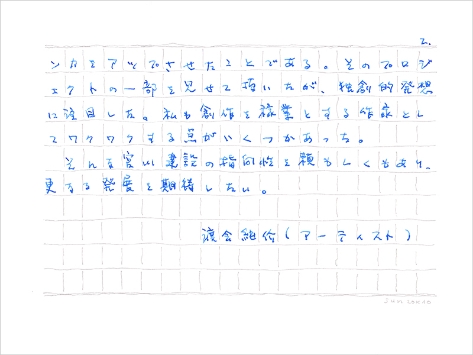 2.
ンカをアップさせたことである。そのプロジ
ェクトの一部を見せて頂いたが、独創的発想
に注目した。私も創作を稼業とする作家とし
てワクワクする点がいくつかあった。
そんな 建設の指向性を頼もしくもあり、
更なる発展を期待したい。
(アーティスト)